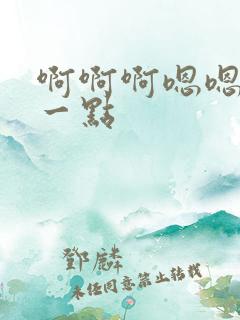 啊啊啊嗯嗯
一點
鄧麟
未經同意禁止轉載